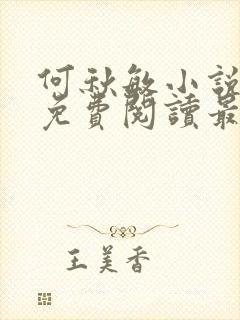 何秋敏小說
免費閱讀最
王美香